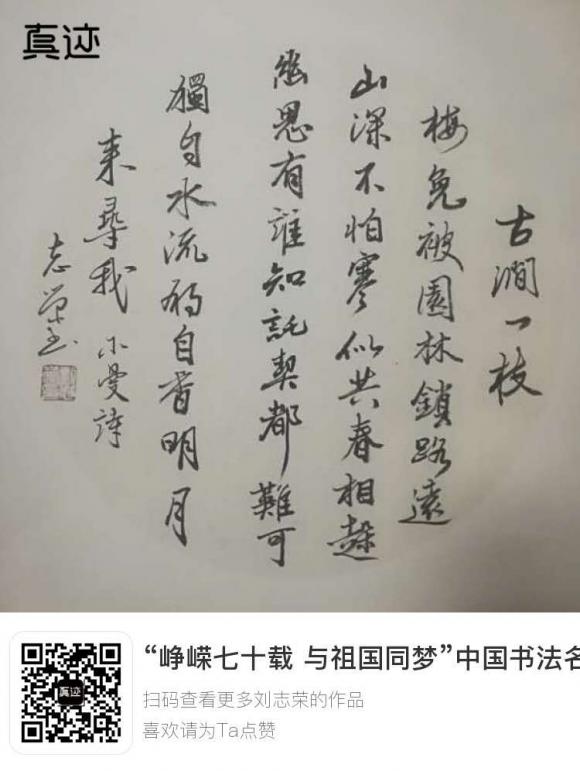 真迹
古澗一枝
梅免被園林鎖路遠
山深不怕寒似共春相趓
幽思有誰知託契都難可
獨自水流獨自香明月
来尋我 小曼
志榮书
真迹
“峥嵘七十载 与祖国同梦”中国书法名
扫码查看更多刘志荣的作品
喜欢请为Ta点赞